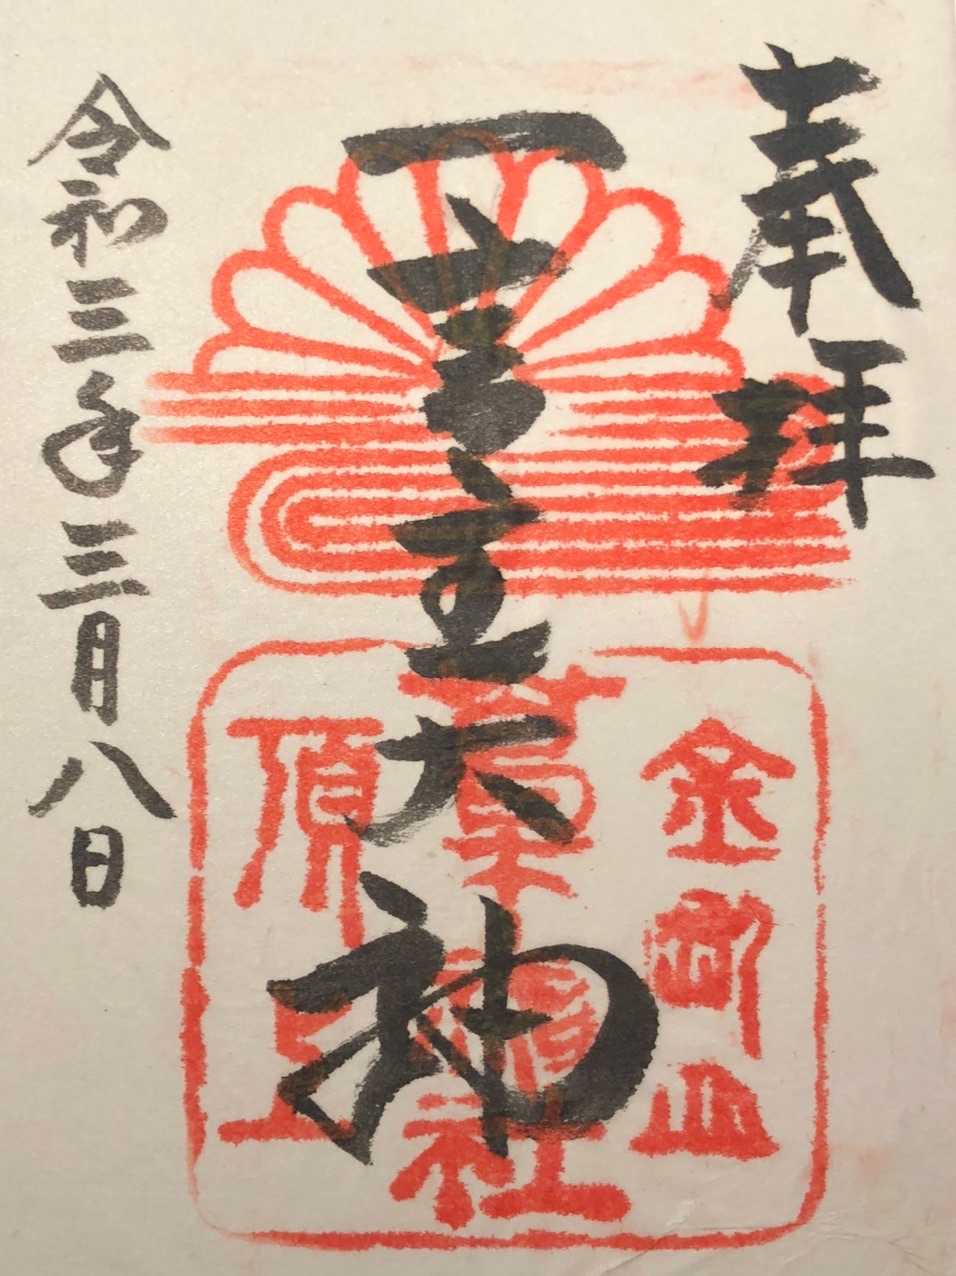 奉拝
一言主大神
令和三年三月八日
金剛山
葛木神社
頂上